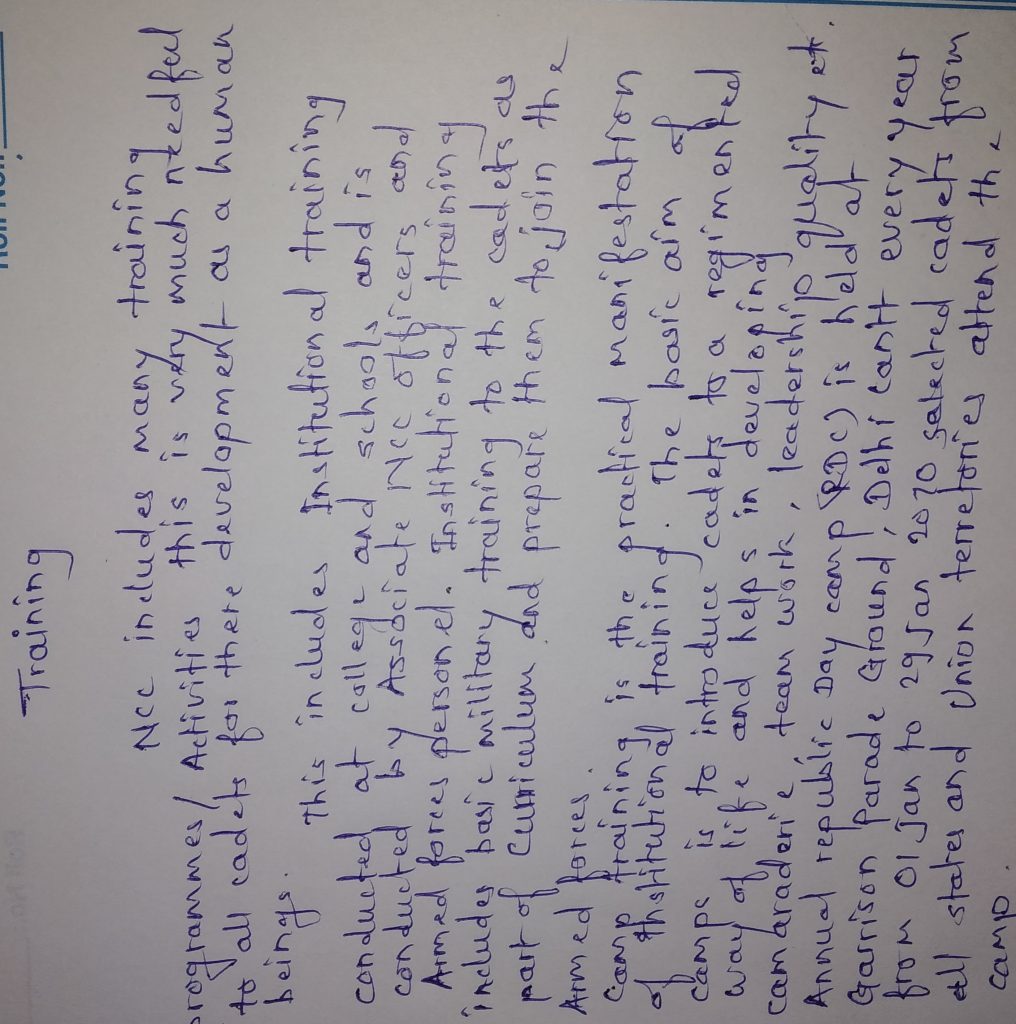 Training
NCC includes many training
programmes/Activities this is very much needful
to all cadets for there development as a human
beings.
This includes Institutional training
conducted at college and schools and is
conducted by Associate NCC officers and
Armed forces personel. Institutional training
includes basic military training to the cadets as
part of Curriculum and prepare them to join the
Armed forces.
Camp training is the practical manifestation
of Institutional training. The basic aim of
camps is to introduce cadets to a regimented
way of life and helps in developing
camaraderie team work, leadership quality et.
Annual republic Day camp (RDC) is held at
Garrison Parade Ground, Delhi cantt every year
from 01 Jan to 29 Jan 2070 selected cadets from
all states and Union terretories attend the
camp.